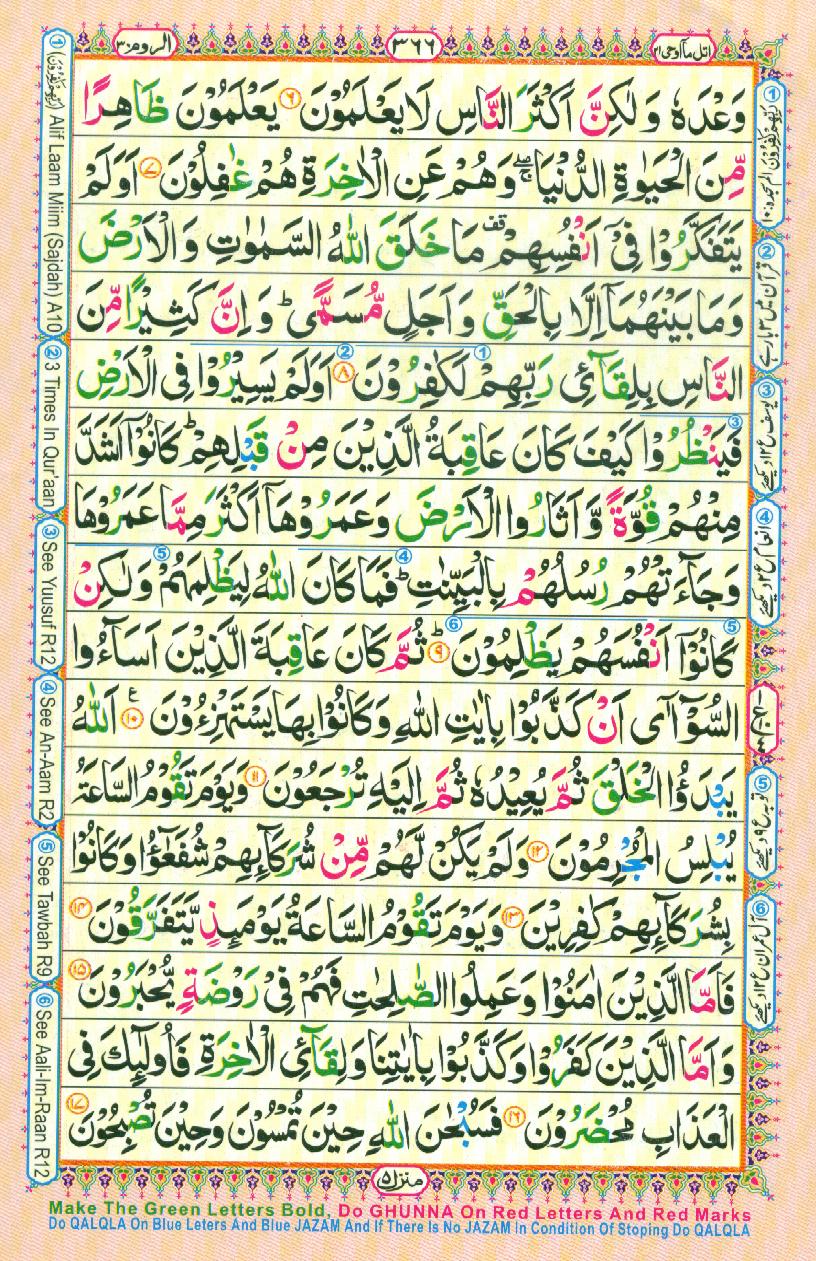 اتل ما اوحی ٢١
٣٦٦
الروم ٣٠
وَعْدَهٗ وَلٰكِنَّ اَكْثَرَ النَّاسِ لَا يَعْلَمُوْنَ ٦ يَعْلَمُوْنَ ظَاهِرًا
مِّنَ الْحَيٰوةِ الدُّنْيَا ۖۚ وَهُمْ عَنِ الْاٰخِرَةِ هُمْ غٰفِلُوْنَ ٧ اَوَلَمْ
يَتَفَكَّرُوْا فِيْٓ اَنْفُسِهِمْ ۗ مَا خَلَقَ اللّٰهُ السَّمٰوٰتِ وَالْاَرْضَ
وَمَا بَيْنَهُمَآ اِلَّا بِالْحَقِّ وَاَجَلٍ مُّسَمًّى ؕ وَاِنَّ كَثِيْرًا مِّنَ
النَّاسِ بِلِقَآئِ رَبِّهِمْ لَكٰفِرُوْنَ ٨ اَوَلَمْ يَسِيْرُوْا فِى الْاَرْضِ
فَيَنْظُرُوْا كَيْفَ كَانَ عَاقِبَةُ الَّذِيْنَ مِنْ قَبْلِهِمْ ؕ كَانُوْٓا اَشَدَّ
مِنْهُمْ قُوَّةً وَّاَثَارُوا الْاَرْضَ وَعَمَرُوْهَآ اَكْثَرَ مِمَّا عَمَرُوْهَا
وَجَآءَتْهُمْ رُسُلُهُمْ بِالْبَيِّنٰتِ ؕ فَمَا كَانَ اللّٰهُ لِيَظْلِمَهُمْ وَلٰكِنْ
كَانُوْٓا اَنْفُسَهُمْ يَظْلِمُوْنَ ٩ ؕ ثُمَّ كَانَ عَاقِبَةَ الَّذِيْنَ اَسَآءُوا
السُّوْٓآٰى اَنْ كَذَّبُوْا بِاٰيٰتِ اللّٰهِ وَكَانُوْا بِهَا يَسْتَهْزِءُوْنَ ١٠ ع اَللّٰهُ
يَبْدَؤُا الْخَلْقَ ثُمَّ يُعِيْدُهٗ ثُمَّ اِلَيْهِ تُرْجَعُوْنَ ١١ وَيَوْمَ تَقُوْمُ السَّاعَةُ
يُبْلِسُ الْمُجْرِمُوْنَ ١٢ وَلَمْ يَكُنْ لَّهُمْ مِّنْ شُرَكَآئِهِمْ شُفَعٰٓؤُا وَكَانُوْا
بِشُرَكَآئِهِمْ كٰفِرِيْنَ ١٣ وَيَوْمَ تَقُوْمُ السَّاعَةُ يَوْمَئِذٍ يَّتَفَرَّقُوْنَ ١٤
فَاَمَّا الَّذِيْنَ اٰمَنُوْا وَعَمِلُوا الصّٰلِحٰتِ فَهُمْ فِيْ رَوْضَةٍ يُّحْبَرُوْنَ ١٥
وَاَمَّا الَّذِيْنَ كَفَرُوْا وَكَذَّبُوْا بِاٰيٰتِنَا وَلِقَآئِ الْاٰخِرَةِ فَاُولٰٓئِكَ فِى
الْعَذَابِ مُحْضَرُوْنَ ١٦ فَسُبْحٰنَ اللّٰهِ حِيْنَ تُمْسُوْنَ وَحِيْنَ تُصْبِحُوْنَ ١٧
منزل ٥
② قرآن میں ۳ بار ہے
③ یوسف ع ۱۲ دیکھئے
④ انعام ع ۲ دیکھئے
⑤ توبہ ع ۹ دیکھئے
⑥ آل عمران ع ۱۲ دیکھئے
① Alif Laam Miim (Sajdah) A10
② 3 Times In Qur'aan
③ See Yuusuf R12
④ See An-Aam R2
⑤ See Tawbah R9
⑥ See Aali-Im-Raan R12
Make The Green Letters Bold, Do GHUNNA On Red Letters And Red Marks
Do QALQLA On Blue Leters And Blue JAZAM And If There Is No JAZAM In Condition Of Stoping Do QALQLA